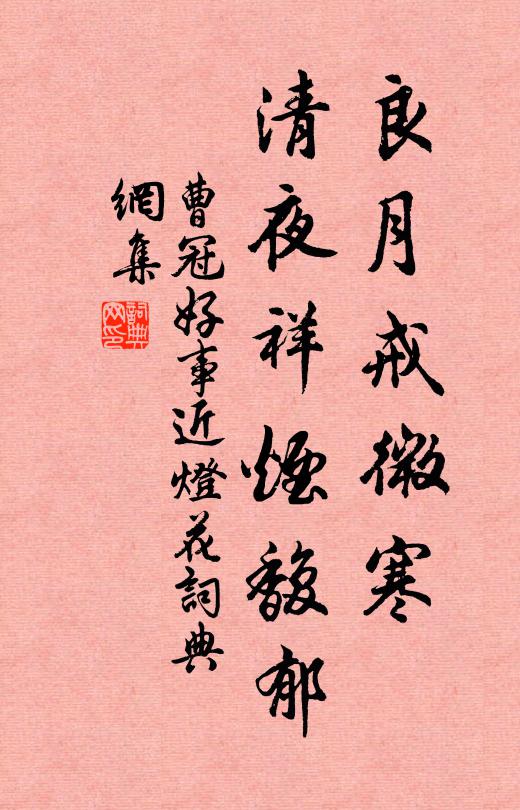 良月戒微寒
清夜祥煙馥郁
曹冠好事近燈花詞典
網集
詞典
网印